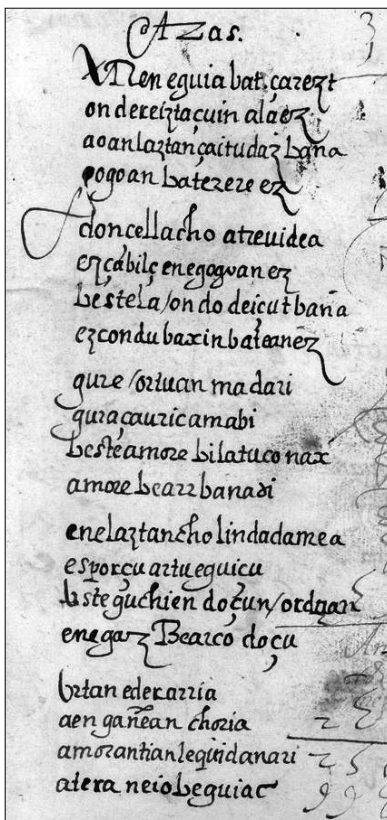 Azas.
Nen eguia bat çarezt
on dereiztaçuin alaez
aoan laztan çaitudaz baña
gogoan batezere ez
doncellacho atreuidea
ez çabilç ene gogoan ez
bestela / ondo deiçut baña
ezcondu baxin batean ez
gure / ortuan madari
gura çauricamabi
beste amore bilatuco nax
amore bearr banadi
ene laztancho linda damea
esporçu artu eguicu
beste guchien doçun / orduan
ene garz Bearco doçu
Urtan ederarria
aen gañean choria
amorantian leqindanari
atera neio beguiac